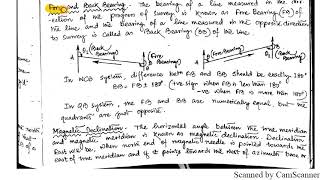 Fore and Back Bearing: The bearing of a line measured in the dir-
ection of the progress of survey is known as Fore Bearing (FB) of
the line, and the bearing of a line measured in the opposite direction
to survey is called as "Back Bearing (BB) of the line.
(Back Bearing)
(Fore Bearing)
(Back Bearing)
A
B
In WCB system, difference betn FB and BB should be exactly 180°
BB = FB ± 180° (+ve sign when FB is less than 180°
-ve when FB is more than 180°)
In QB system, the FB and BB are numerically equal, but the
quadrants are just opposite.
Magnetic Declination: The horizontal angle between the true meridian
and magnetic meridian is known as magnetic declination. Declination
East will be, when north end of magnetic needle is pointed towards the
east of true meridian and if it points towards the west of azimuth
Scanned by CamScanner